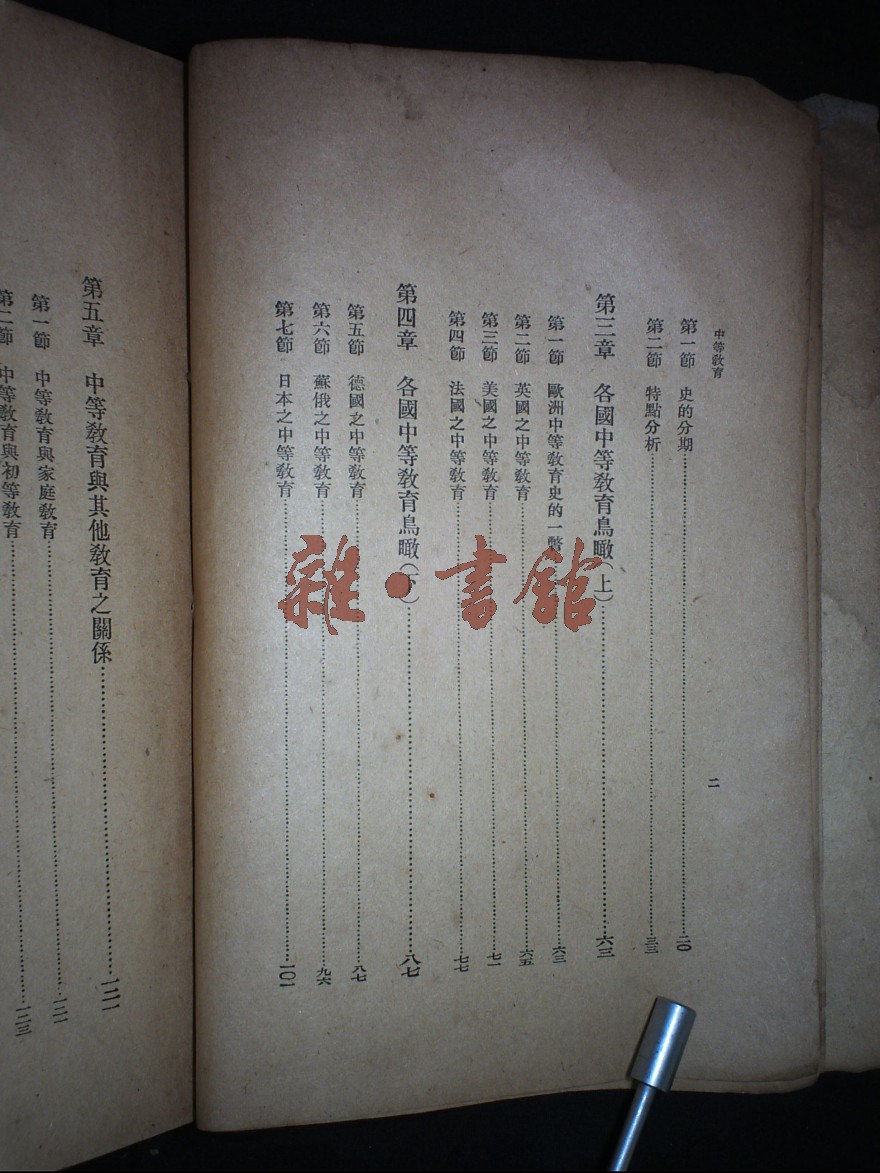 中等教育
二
第一節 史的分期 二〇
第二節 特點分析 三三
第三章 各國中等教育鳥瞰(上) 六三
第一節 歐洲中等教育史的一瞥 六三
第二節 英國之中等教育 六五
第三節 美國之中等教育 七一
第四節 法國之中等教育 七七
第四章 各國中等教育鳥瞰(下) 八七
第五節 德國之中等教育 八七
第六節 蘇俄之中等教育 九六
第七節 日本之中等教育 一〇一
第五章 中等教育與其他教育之關係 一二一
第一節 中等教育與家庭教育 一二一
第二節 中等教育與初等教育 一二三
雜·書館